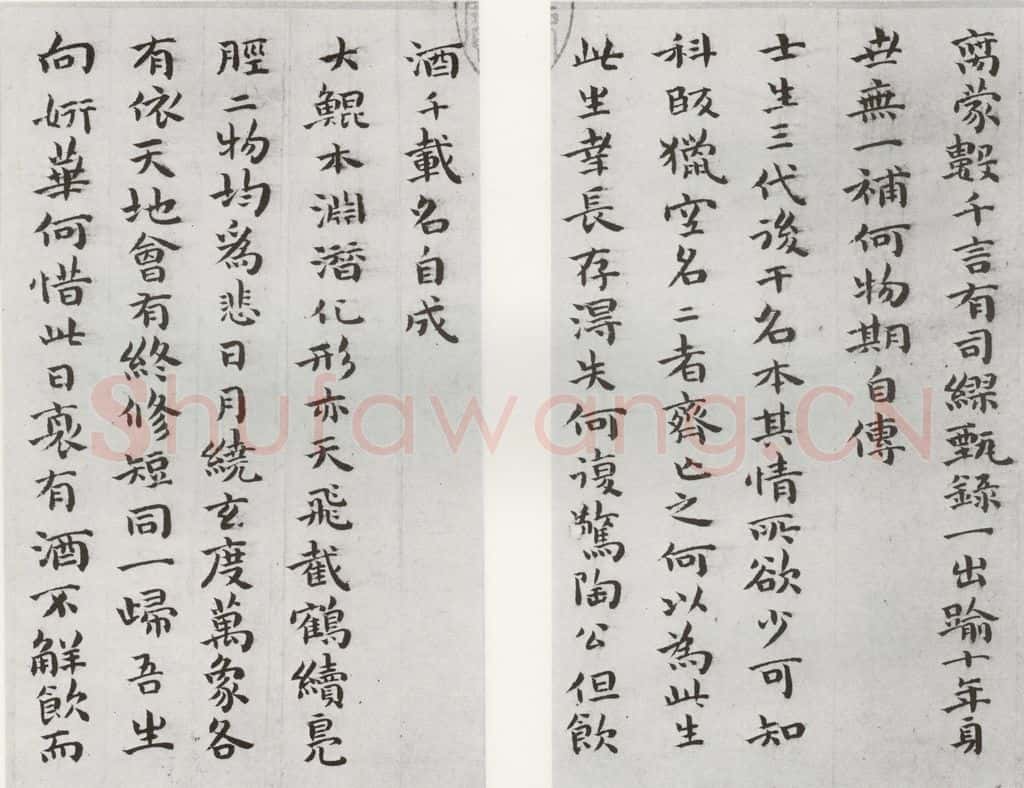 窩蒙數千言有司繆甄錄一出踰十年身
世無一補何物期自傳
士生三代後干名本其情所欲少可知
科販獵空名二者齊亡之何以為此生
此生幸長存得失何復驚陶公但飲
酒千載名自成
大鯤本淵潛化形亦天飛截鶴續鳧
脛二物均為悲日月繞玄度萬象各
有依天地會有終修短同一歸吾生
向妍華何惜此日衰有酒不解飲而
Shufawang.CN